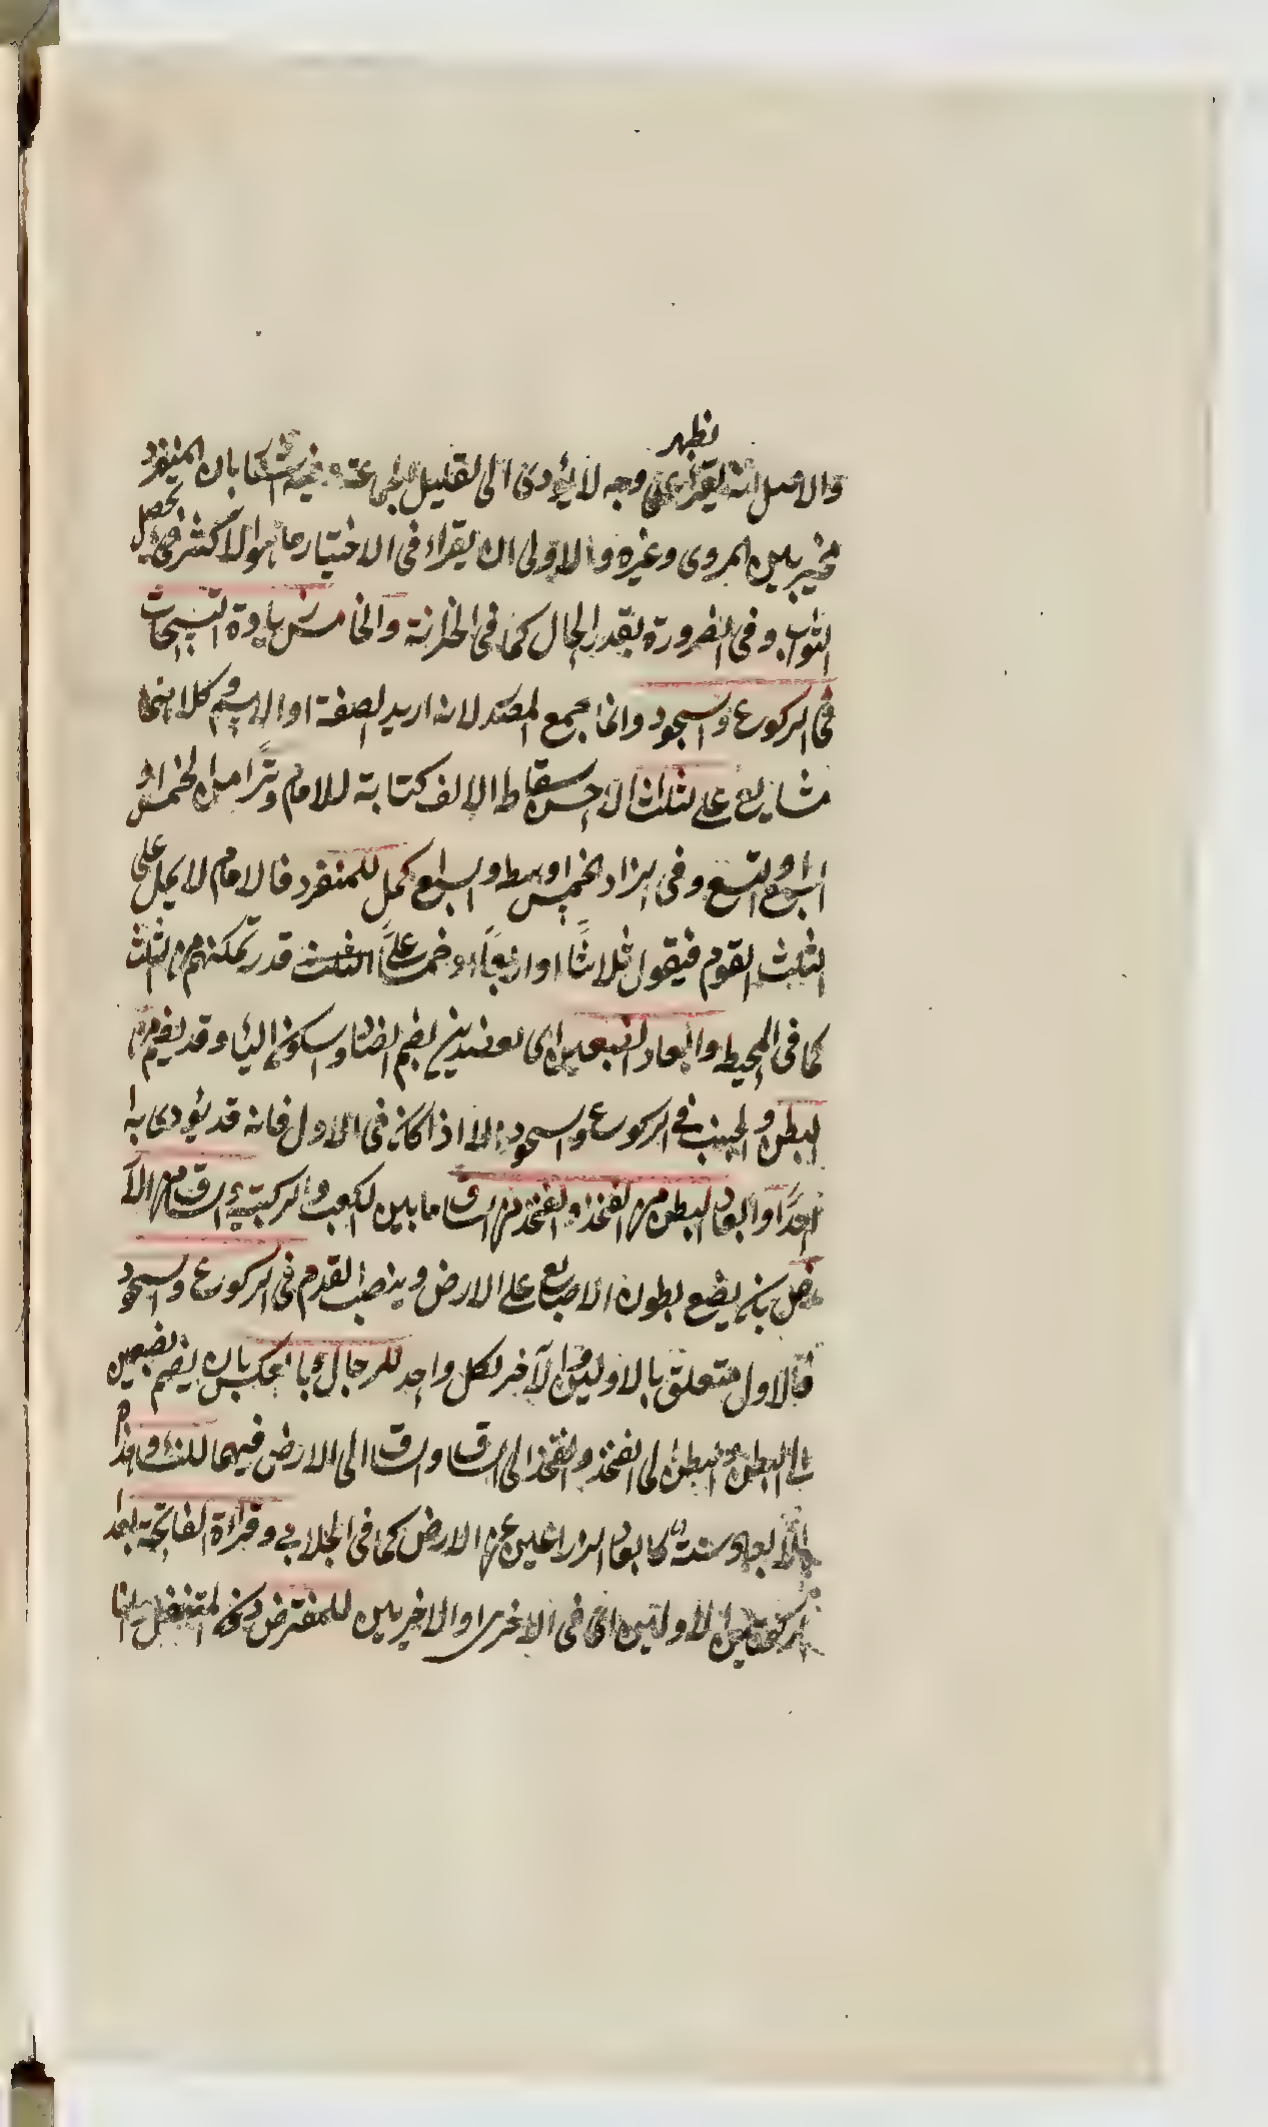 يظهر
والاصل انه يقرأ على وجه لا يؤدى الى تقليل الجماعة بان المنفرد
مخير بين المروى وغيره والاولى ان يقراء فى الاختيار ما هو الاكثر يحصل
الثواب وفى الضرورة بقدر الحال كما فى الخزانة والخامس زيادة التسبيحات
فى الركوع والسجود وانما جمع المصدر لانه اريد الصفة او الاسم كلاهما
شايع على الثلث الاحسن اسقاط الالف كتابة للامام وترا من الخمس او
السبع او التسع وفى الزاد الخمس اوسط والسبع اكمل للمنفرد فالامام لا يحمل على
الثلث القوم فيقول ثلاثا او اربعا او خمسا على الثلث قدر تمكنهم من الثلث
كما فى المحيط وابعاد الضبعين اى العضدين بضم الضاد وسكون الباء وقد يضم من
البطن والجنب فى الركوع والسجود الا اذا كان فى الاول فانه قد يؤدى به
احدا وابعاد البطن من الفخذ والفخذ من الساق ما بين الكعب والركبة والساق من الار
ض بان يضع بطون الاصابع على الارض وينصب القدم فى الركوع والسجود
فالاول متعلق بالاولين والآخر لكل واحد للرجال وبالعكس بان يضم الضبعين
الى البطن والبطن الى الفخذ والفخذ الى الساق والساق الى الارض فيهما للنساء وهذا
الابعاد سنة كابعاد الذراعين عن الارض كما فى الجلابى وقراءة الفاتحة بعد
الركعتين الاولتين اى فى الاخرى او الاخريين للمفترض دون المتنفل انما